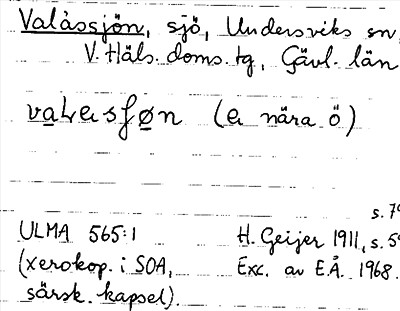 Valåssjön, sjö, Undersviks sn,
V. Häls. doms. tg, Gävl. län
(a nära ö)
s. 79
ULMA 565:1 H. Geijer 1911, s. 59
(xerokop. i SOA, Exc. av E.Å. 1968.
särsk. kapsel).